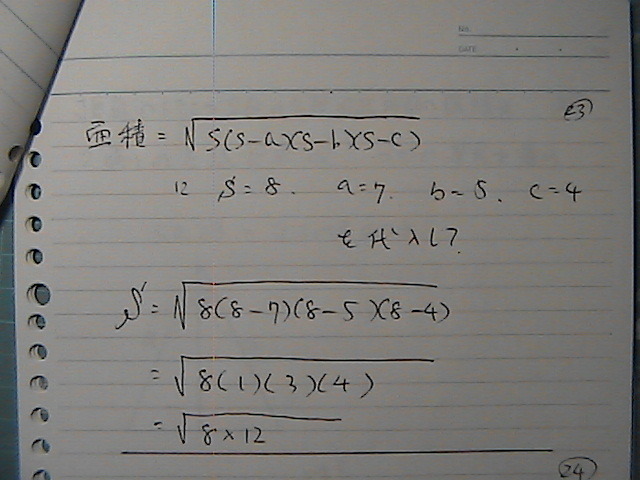 NO.
DATE
23
面積 = √S(S-a)(S-b)(S-c)
に S=8. a=7. b=5. c=4
を代入して
S = √8(8-7)(8-5)(8-4)
= √8(1)(3)(4)
= √8×12
24